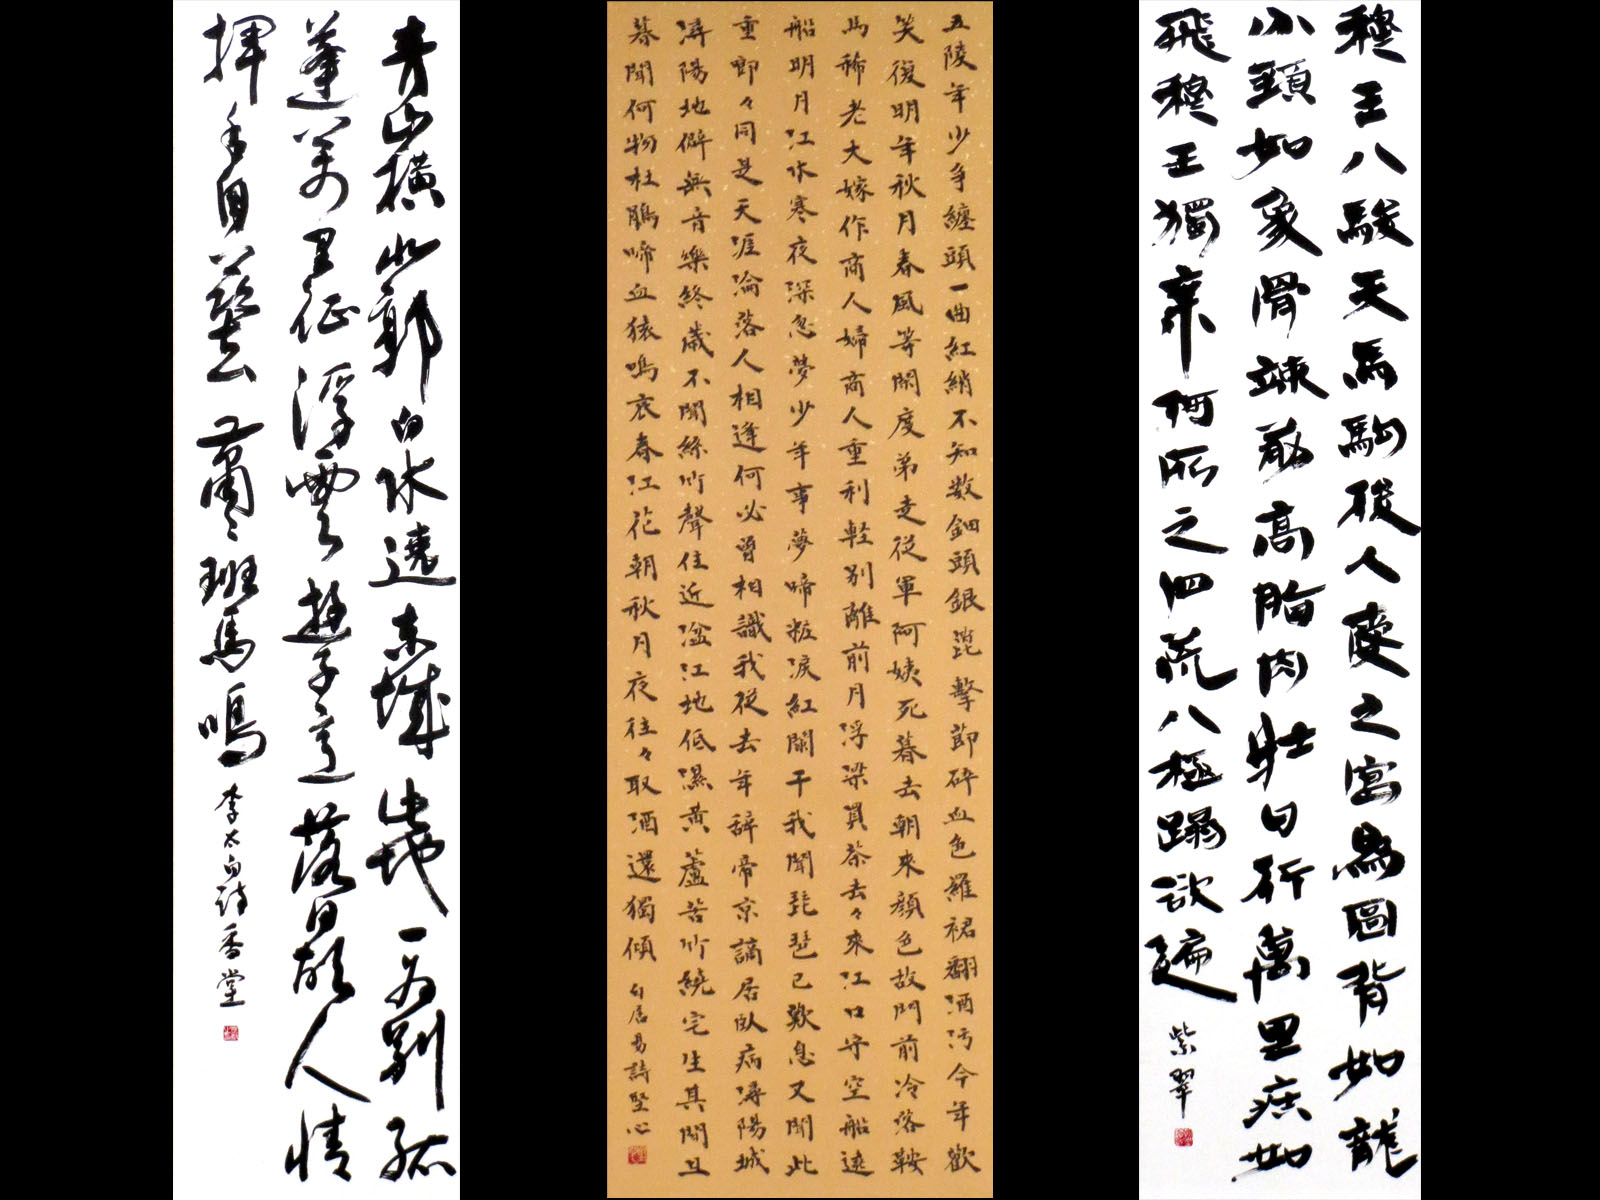 穆王八駿天馬駒後人愛之寫為圖背如龍
兮頸如象骨竦筋高脂肉壮日行萬里疾如
飛穆王獨乘何所之四荒八極蹋欲遍 紫翠
五陵年少争纏頭一曲紅綃不知数鈿頭銀篦擊節碎血色羅裙翻酒汚今年歡
笑復明年秋月春風等閑度弟走従軍阿姨死暮去朝来顔色故門前冷落鞍
馬稀老大嫁作商人婦商人重利軽別離前月浮梁買茶去々来江口守空船遶
船明月江水寒夜深忽夢少年事夢啼粧涙紅闌干我聞琵琶已歎息又聞此
重喞々同是天涯淪落人相逢何必曽相識我従去年辞帝京謫居臥病潯陽城
潯陽地僻無音樂終歳不聞絲竹聲住近湓江地低濕黄蘆苦竹繞宅生其間旦
暮聞何物杜鵑啼血猿鳴哀春江花朝秋月夜往々取酒還獨傾 白居易詩 堅心
青山横北郭白水遶東城此地一為別孤
蓬萬里征浮雲遊子意落日故人情
揮手自茲去蕭々班馬鳴 李太白詩 香堂